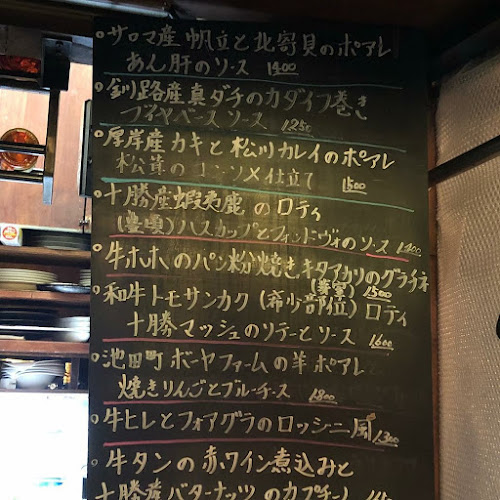 サロマ産 帆立と北寄貝のポアレ
あん肝のソース 1400
釧路産真ダチのカダイフ巻き
ブイヤベースソース 1250
厚岸産カキと松川カレイのポアレ
松茸のコンソメ仕立て 1500
十勝産蝦夷鹿のロティ
(豊頃)ハスカップとフォンドヴォのソース 1400
牛ホホのパン粉焼き キタアカリのグラチネ
1500
和牛トモサンカク(希少部位)ロティ
十勝マッシュのソテーとソース 1600
池田町ボーヤファームの羊ポアレ
焼きりんごとブルーチーズ 1800
牛ヒレとフォアグラのロッシーニ風 1300
牛タンの赤ワイン煮込みと
十勝産バターナッツのカプチーノ